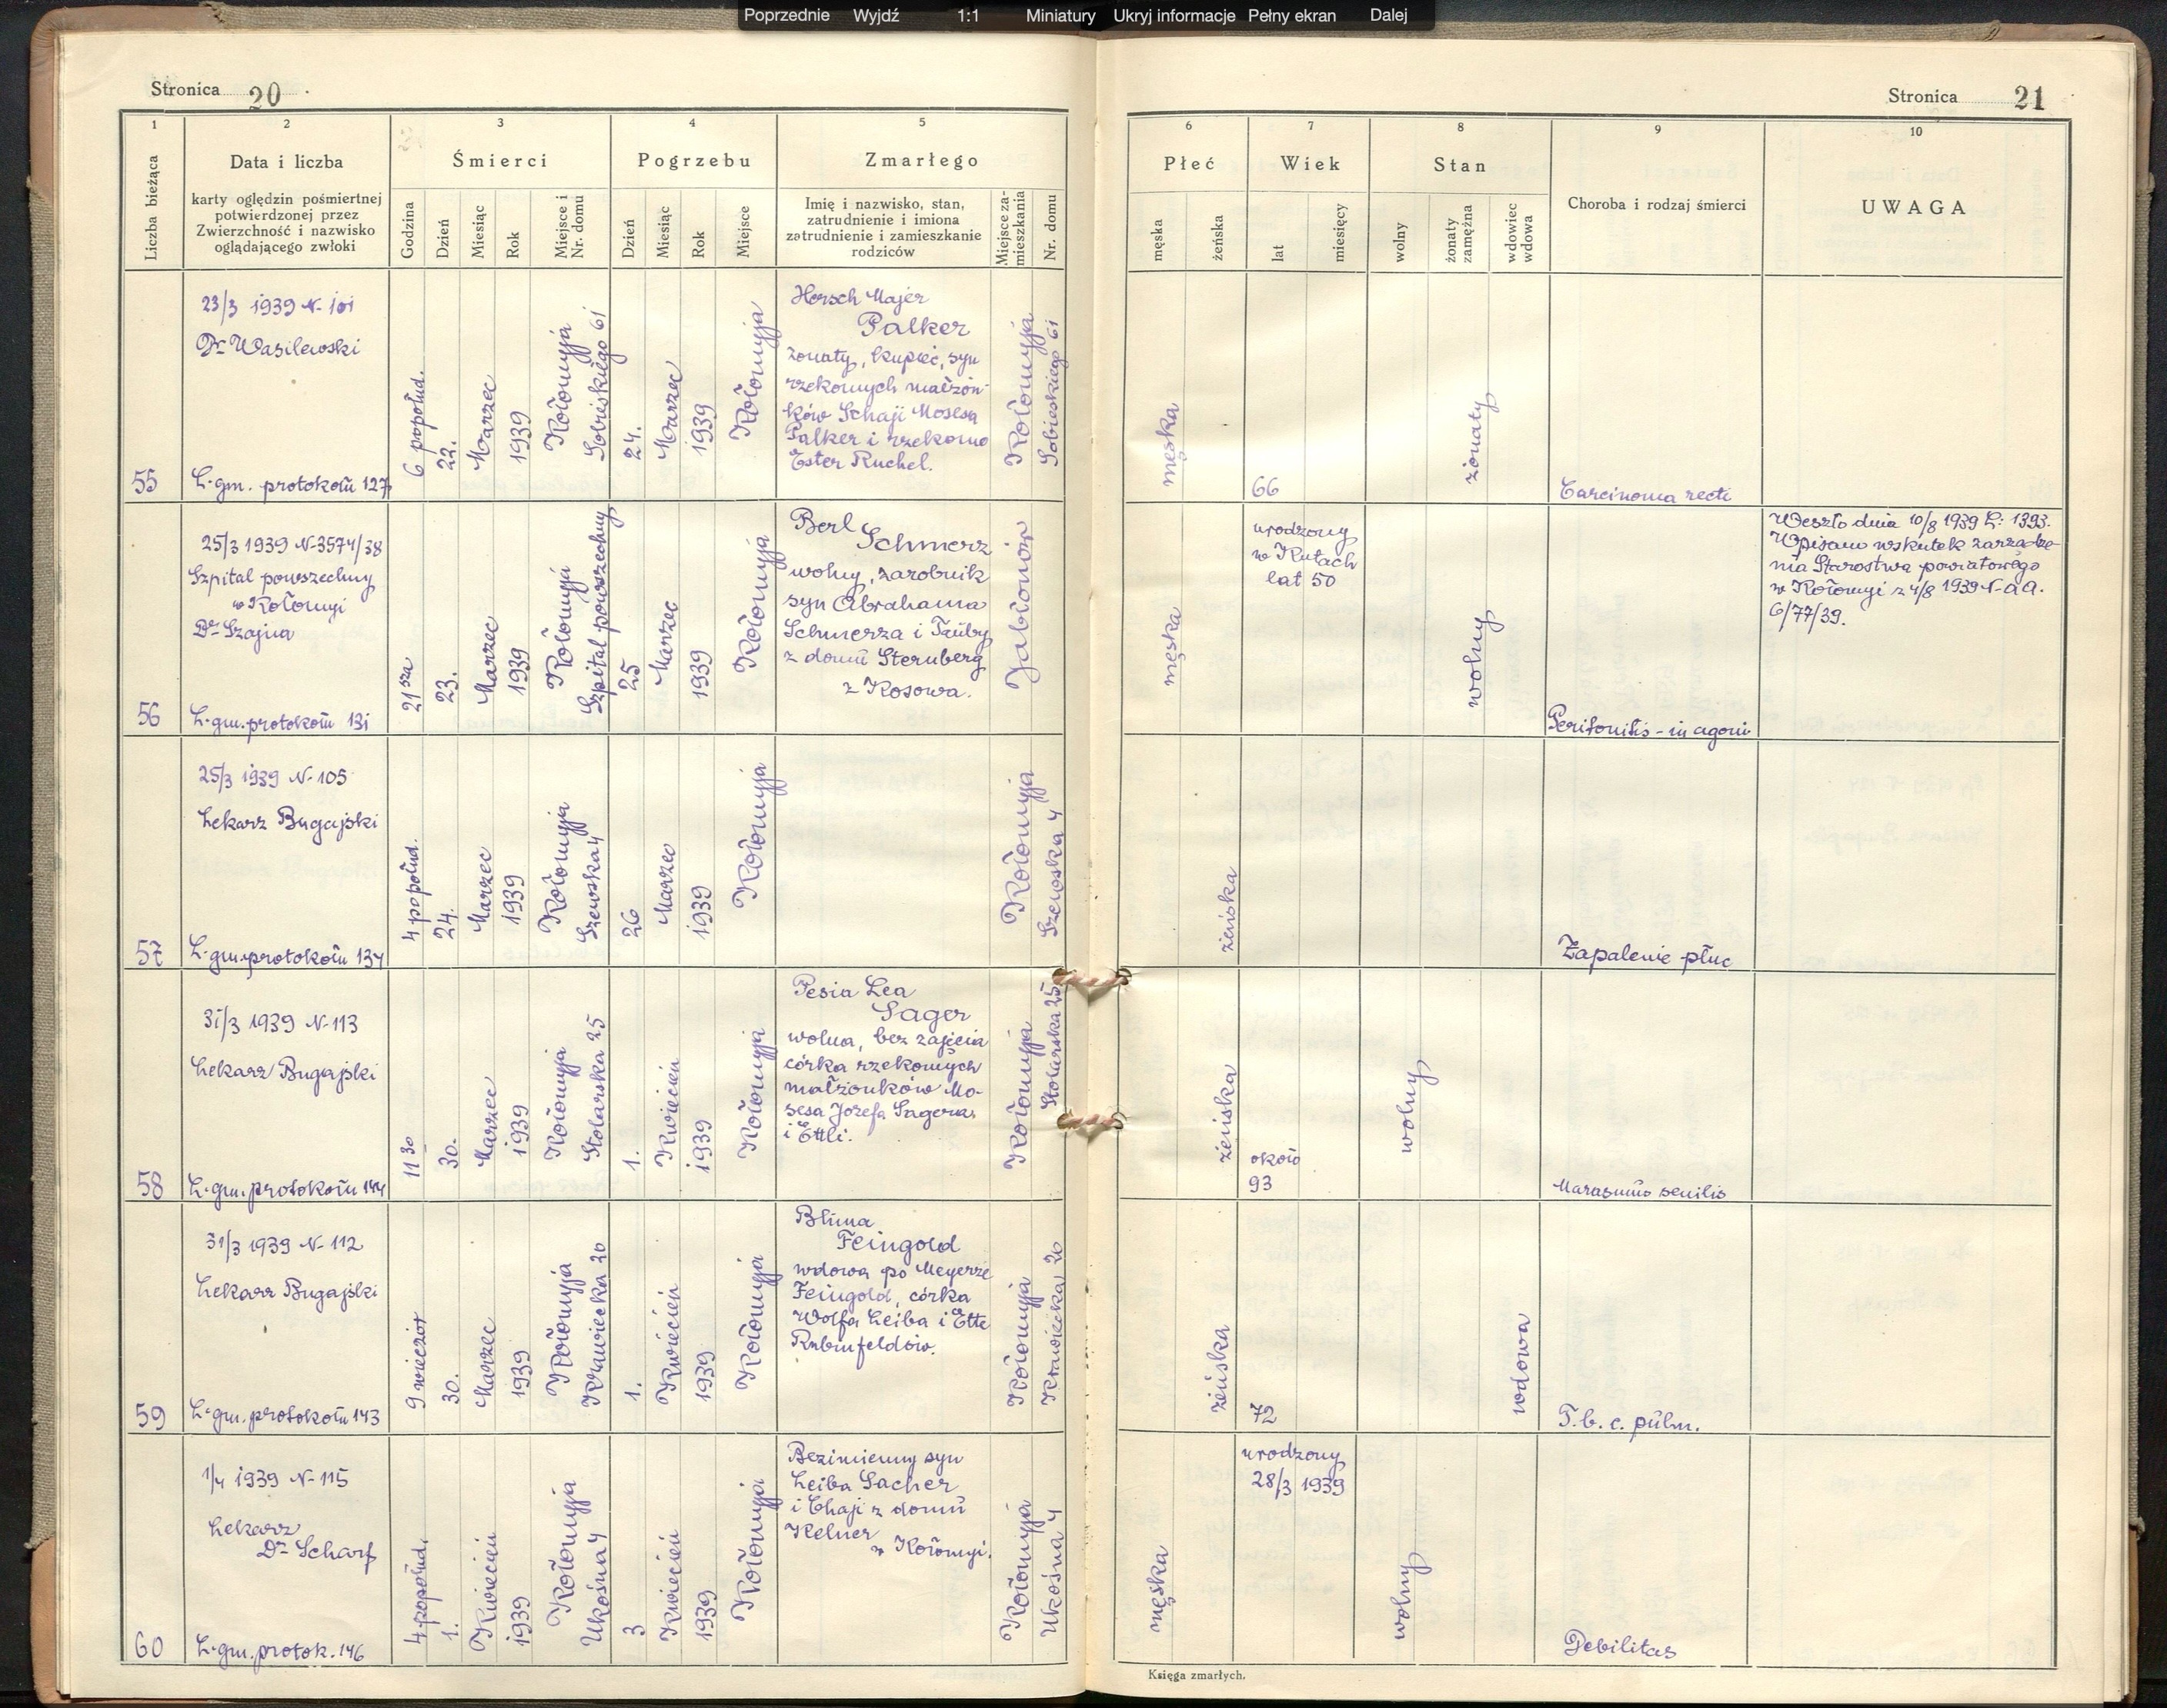 Poprzednie Wyjdź 1:1 Miniatury Ukryj informacje Pełny ekran Dalej
Stronica 20
1
2
3
4
5
Liczba bieżąca
Data i liczba
karty oględzin pośmiertnej
potwierdzonej przez
Zwierzchność i nazwisko
oglądającego zwłoki
Śmierci
Godzina
Dzień
Miesiąc
Rok
Miejsce i
Nr. domu
Pogrzebu
Dzień
Miesiąc
Rok
Miejsce
Zmarłego
Imię i nazwisko, stan,
zatrudnienie i imiona
zatrudnienie i zamieszkanie
rodziców
Miejsce za-
mieszkania
Nr. domu
55
23/3 1939 N- 101
Dr Wasilewski
L. gm. protokołu 127
6 popołud.
22.
Marzec
1939
Kołomyja
Sobieskiego 61
24.
Marzec
1939
Kołomyja
Hersch Majer
Palker
żonaty, kupiec, syn
rzekomych małżon-
ków Schaji Mosesa
Palker i rzekomo
Ester Ruchel.
Kołomyja
Sobieskiego 61
56
25/3 1939 N-3574/38
Szpital powszechny
w Kołomyi
Dr Szajna
L. gm. protokołu 131
21sza
23.
Marzec
1939
Kołomyja
Szpital powszechny
25
Marzec
1939
Kołomyja
Berl
Schmerz
wolny, zarobnik
syn Abrahama
Schmerza i Tauby
z domu Sternberg
z Kosowa.
Jabłonów
57
25/3 1939 N- 105
Lekarz Bugajski
L. gm. protokołu 134
4 popołud.
24.
Marzec
1939
Kołomyja
Szewska 4
26
Marzec
1939
Kołomyja
Kołomyja
Szewska 4
58
31/3 1939 N- 113
Lekarz Bugajski
L. gm. protokołu 144
11 30
30.
Marzec
1939
Kołomyja
Stolarska 25
1.
Kwiecień
1939
Kołomyja
Pesia Lea
Sager
wolna, bez zajęcia
córka rzekomych
małżonków Mo-
sesa Jozefa Sagera
i Ettli.
Kołomyja
Stolarska 25
59
31/3 1939 N- 112
Lekarz Bugajski
L. gm. protokołu 143
9 wieczór
30.
Marzec
1939
Kołomyja
Krawiecka 20
1.
Kwiecień
1939
Kołomyja
Blima
Feingold
wdowa po Meyerze
Feingold, córka
Wolfa Leiba i Ette
Rubinfeldów.
Kołomyja
Krawiecka 20
60
1/4 1939 N- 115
Lekarz
Dr Scharf
L. gm. protok. 146
4 popołud.
1.
Kwiecień
1939
Kołomyja
Ukośna 4
3
Kwiecień
1939
Kołomyja
Bezimienny syn
Leiba Sacher
i Chaji z domu
Kelner
w Kołomyi.
Kołomyja
Ukośna 4
Stronica 21
6
7
8
9
10
Płeć
męska
żeńska
Wiek
lat
miesięcy
Stan
wolny
żonaty
zamężna
wdowiec
wdowa
Choroba i rodzaj śmierci
UWAGA
męska
66
żonaty
Carcinoma recti
męska
urodzony
w Kutach
lat 50
wolny
Peritonitis - in agoni
Weszło dnia 10/8 1939 L: 1393.
Wpisano wskutek zarządze-
nia Starostwa powiatowego
w Kołomyi z 4/8 1939 N- a a.
6/77/39.
żeńska
Zapalenie płuc
żeńska
około
93
wolny
Marasmus senilis
żeńska
72
wdowa
T. b. c. pulm.
męska
urodzony
28/3 1939
wolny
Debilitas
Księga zmarłych.